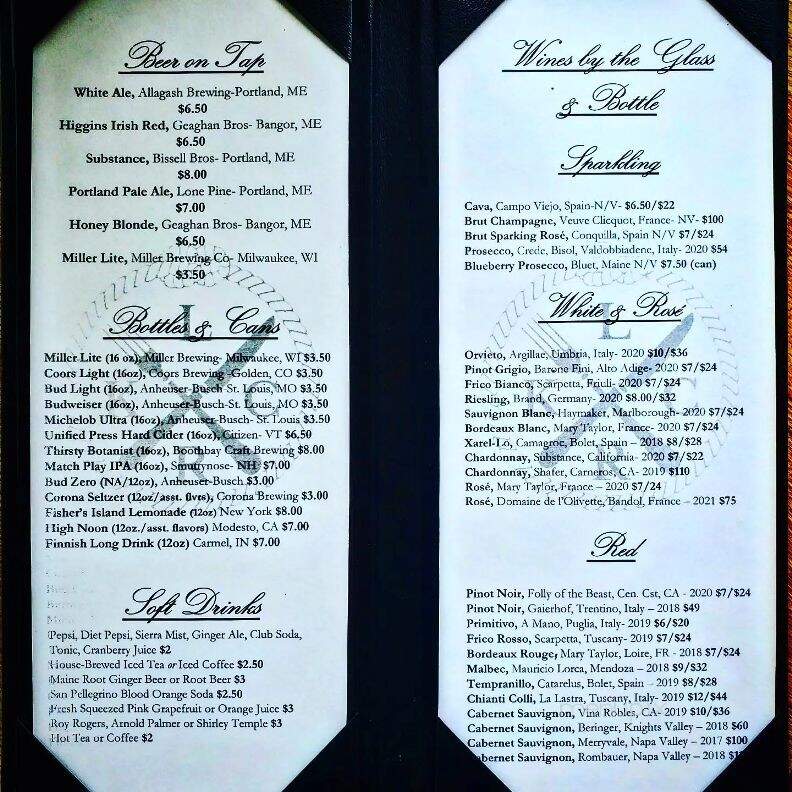 Beer on Tap
White Ale, Allagash Brewing-Portland, ME
$6.50
Higgins Irish Red, Geaghan Bros- Bangor, ME
$6.50
Substance, Bissell Bros- Portland, ME
$8.00
Portland Pale Ale, Lone Pine- Portland, ME
$7.00
Honey Blonde, Geaghan Bros- Bangor, ME
$6.50
Miller Lite, Miller Brewing Co- Milwaukee, WI
$3.50
Bottles & Cans
Miller Lite (16 oz), Miller Brewing- Milwaukee, WI $3.50
Coors Light (16oz), Coors Brewing -Golden, CO $3.50
Bud Light (16oz), Anheuser-Busch-St. Louis, MO $3.50
Budweiser (16oz), Anheuser-Busch-St. Louis, MO $3.50
Michelob Ultra (16oz), Anheuser-Busch- St. Louis $3.50
Unified Press Hard Cider (16oz), Citizen- VT $6.50
Thirsty Botanist (16oz), Boothbay Craft Brewing $8.00
Match Play IPA (16oz), Smuttynose- NH $7.00
Bud Zero (NA/12oz), Anheuser-Busch $3.00
Corona Seltzer (12oz/asst. flvrs), Corona Brewing $3.00
Fisher's Island Lemonade (12oz) New York $8.00
High Noon (12oz./asst. flavors) Modesto, CA $7.00
Finnish Long Drink (12oz) Carmel, IN $7.00
Soft Drinks
Pepsi, Diet Pepsi, Sierra Mist, Ginger Ale, Club Soda,
Tonic, Cranberry Juice $2
House-Brewed Iced Tea or Iced Coffee $2.50
Maine Root Ginger Beer or Root Beer $3
San Pellegrino Blood Orange Soda $2.50
Fresh Squeezed Pink Grapefruit or Orange Juice $3
Roy Rogers, Arnold Palmer or Shirley Temple $3
Hot Tea or Coffee $2
Wines by the Glass
& Bottle
Sparkling
Cava, Campo Viejo, Spain-N/V- $6.50/$22
Brut Champagne, Veuve Clicquot, France- NV- $100
Brut Sparking Rosé, Conquilla, Spain N/V $7/$24
Prosecco, Crede, Bisol, Valdobbiadene, Italy- 2020 $54
Blueberry Prosecco, Bluet, Maine N/V $7.50 (can)
White & Rosé
Orvieto, Argillae, Umbria, Italy- 2020 $10/$36
Pinot Grigio, Barone Fini, Alto Adige- 2020 $7/$24
Frico Bianco, Scarpetta, Friuli- 2020 $7/$24
Riesling, Brand, Germany- 2020 $8.00/$32
Sauvignon Blanc, Haymaker, Marlborough- 2020 $7/$24
Bordeaux Blanc, Mary Taylor, France- 2020 $7/$24
Xarel-Lo, Camagroc, Bolet, Spain – 2018 $8/$28
Chardonnay, Substance, California- 2020 $7/$22
Chardonnay, Shafer, Carneros, CA- 2019 $110
Rosé, Mary Taylor, France – 2020 $7/24
Rosé, Domaine de l'Olivette, Bandol, France – 2021 $75
Red
Pinot Noir, Folly of the Beast, Cen. Cst, CA - 2020 $7/$24
Pinot Noir, Gaierhof, Trentino, Italy – 2018 $49
Primitivo, A Mano, Puglia, Italy- 2019 $6/$20
Frico Rosso, Scarpetta, Tuscany- 2019 $7/$24
Bordeaux Rouge, Mary Taylor, Loire, FR - 2018 $7/$24
Malbec, Mauricio Lorca, Mendoza – 2018 $9/$32
Tempranillo, Catarelus, Bolet, Spain – 2019 $8/$28
Chianti Colli, La Lastra, Tuscany, Italy- 2019 $12/$44
Cabernet Sauvignon, Vina Robles, CA- 2019 $10/$36
Cabernet Sauvignon, Beringer, Knights Valley – 2018 $60
Cabernet Sauvignon, Merryvale, Napa Valley – 2017 $100
Cabernet Sauvignon, Rombauer, Napa Valley – 2018
L
C